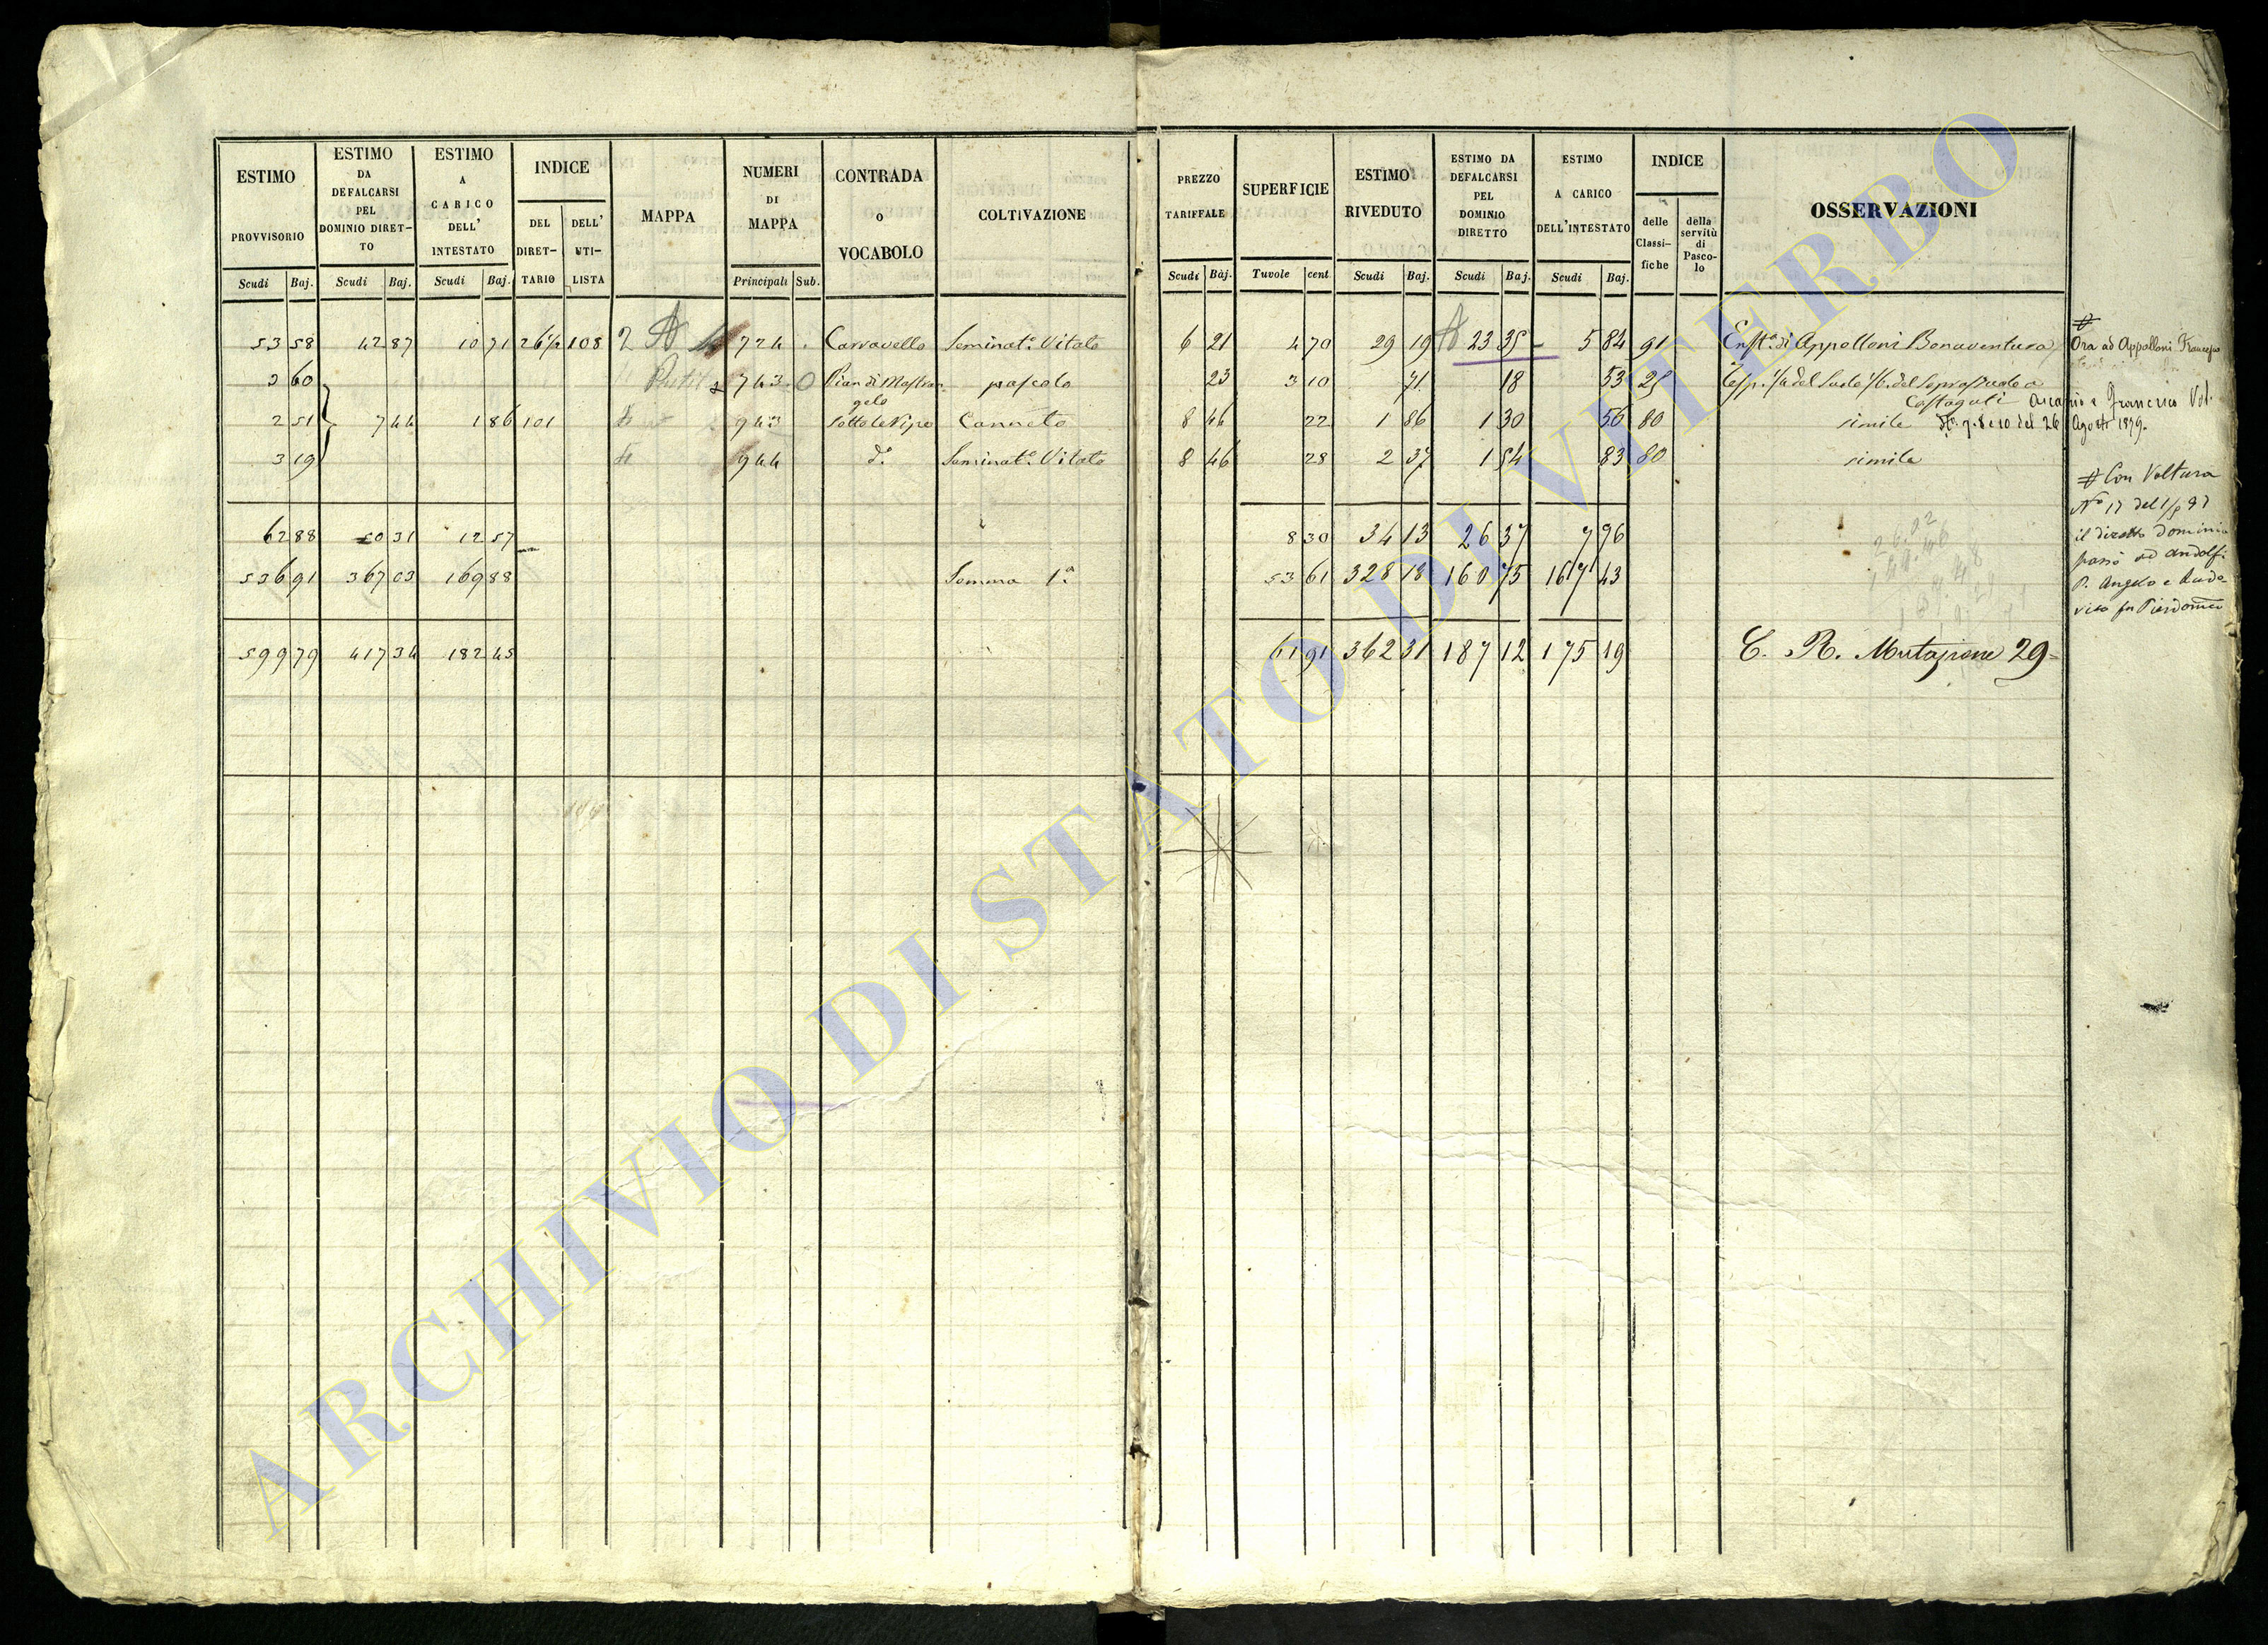 ESTIMO PROVVISORIO Scudi Baj.
ESTIMO DA DEFALCARSI PEL DOMINIO DIRETTO Scudi Baj.
ESTIMO A CARICO DELL' INTESTATO Scudi Baj.
INDICE DEL DIRETTARIO DELL' UTILISTA
MAPPA
NUMERI DI MAPPA Principali Sub.
CONTRADA O VOCABOLO
COLTIVAZIONE
PREZZO TARIFFALE Scudi Baj.
SUPERFICIE Tavole cent.
ESTIMO RIVEDUTO Scudi Baj.
ESTIMO DA DEFALCARSI PEL DOMINIO DIRETTO Scudi Baj.
ESTIMO A CARICO DELL'INTESTATO Scudi Baj.
INDICE delle Classifiche della servitù di Pascolo
OSSERVAZIONI
53 58 42 87 10 71 108 2 724 Carravello Seminat.o Vitato 6 21 4 70 29 19 23 35 5 84 91 Enft.a di Appolloni Bonaventura
3 60 743 0 Pian di Mastrangelo pascolo 23 3 10 71 18 53 25
2 51 7 44 1 86 101 943 Sotto le Ripe Canneto 8 46 22 1 86 1 30 56 80 simile
3 19 944 d.o Seminat.o Vitato 8 46 28 2 37 1 54 83 80 simile
62 88 50 31 12 57 8 30 34 13 26 37 7 96
536 91 367 03 169 88 Somma 1.a 53 61 328 18 160 75 167 43
599 79 417 34 182 45 61 91 362 31 187 12 175 19 C. R. Mutazione 29
Ora ad Appolloni Francesco
e Francesco Vol.
del 26 Agosto 1879.
# Con Voltura
N.o 17 del
il diretto dominio
passò ad
P. Angelo e Ludo-
vico fu Pierdom
ARCHIVIO DI STATO DI VITERBO